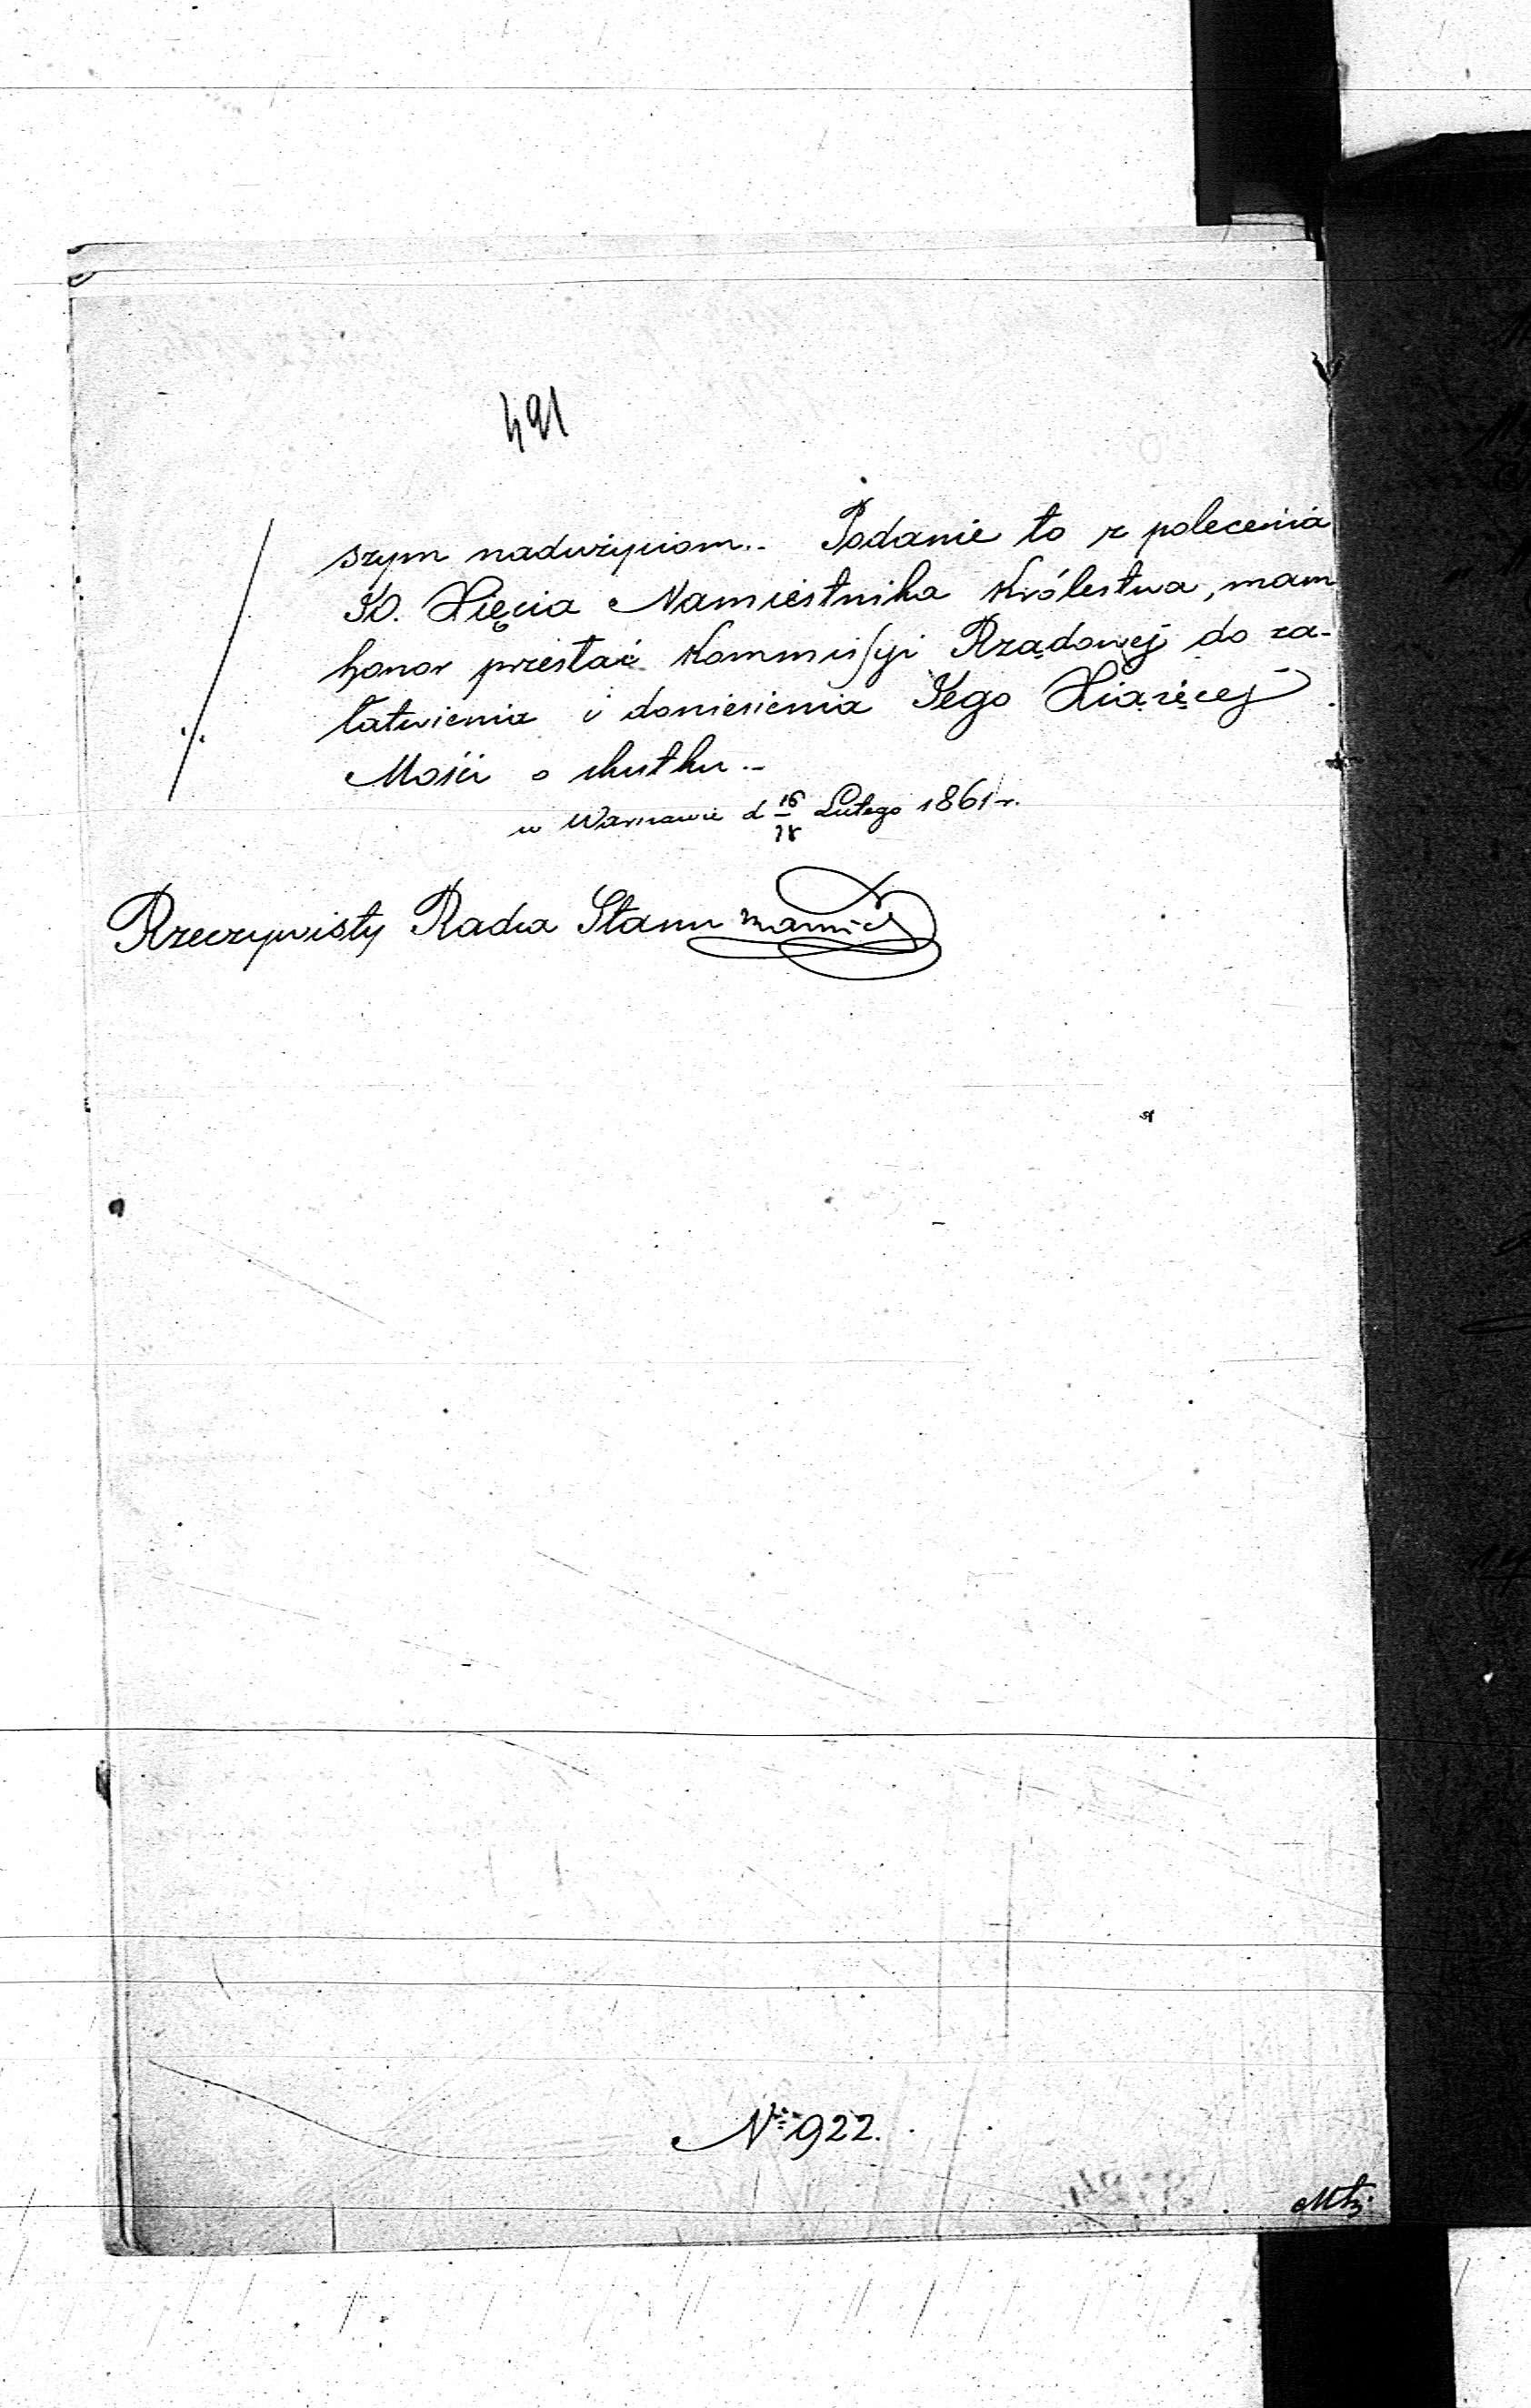 491
szym nadużyciom.. Podanie to z polecenia
JO. Xięcia Namiestnika Królestwa, mam
honor przesłać Kommissyi Rządowej do za-
łatwienia i doniesienia Jego Xiążęcej
Mości o skutku..
w Warszawie d 16/28 Lutego 1861 r.
Rzeczywisty Radca Stanu
№ 922.